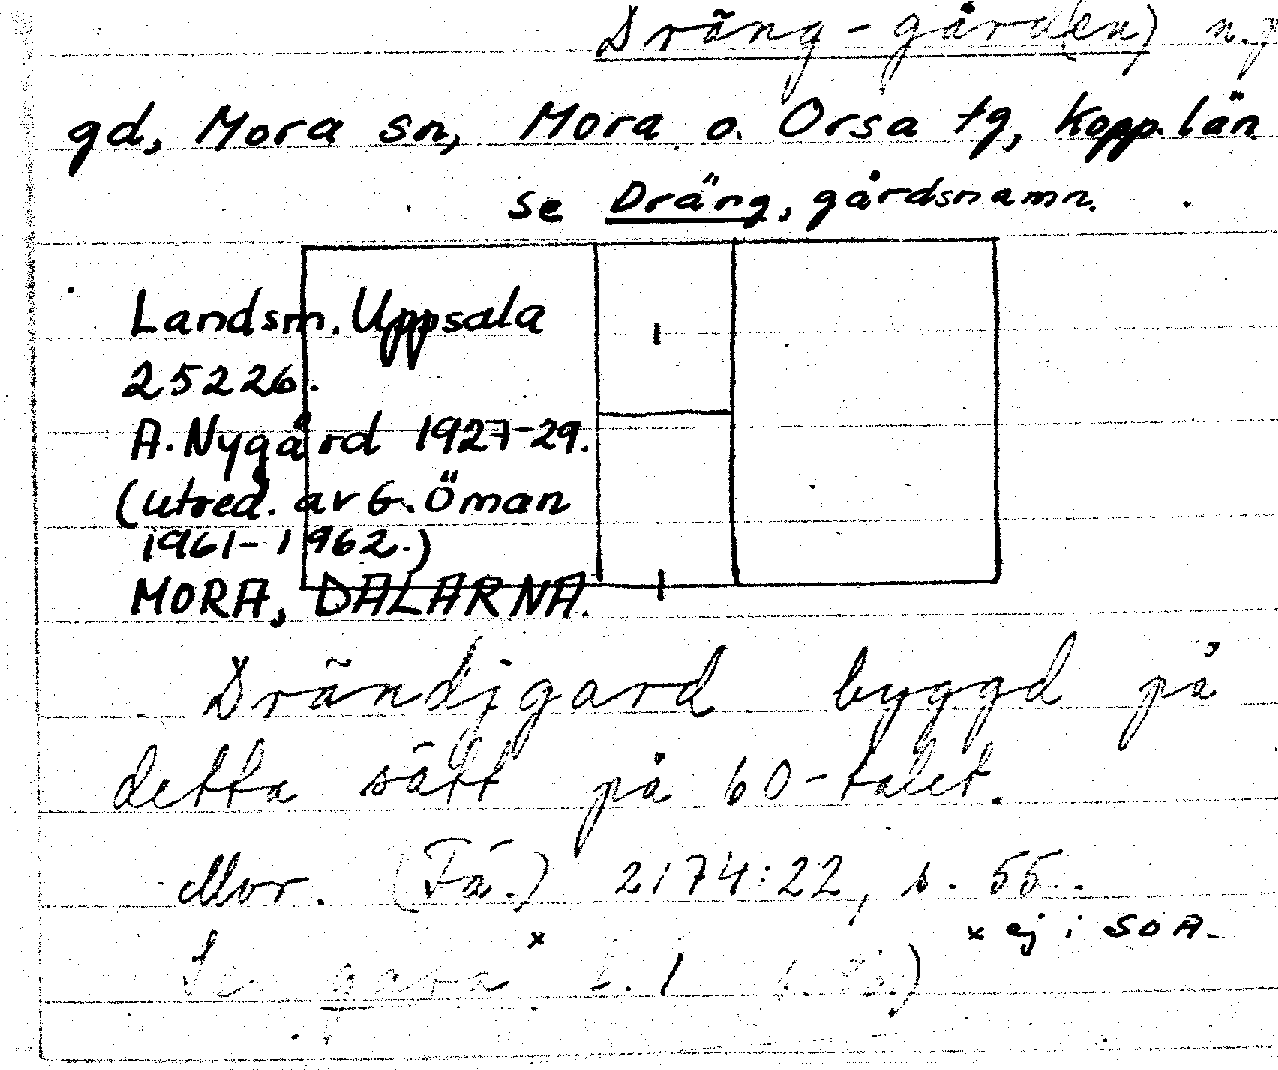 Dräng-gård(en)
gd, Mora sn, Mora o. Orsa tg, Kopp. län
se Dräng, gårdsnamn.
Landsm. Uppsala
25226.
A. Nygård 1927-29.
(utred. av G. Öman
1961-1962.)
MORA, DALARNA.
Drändjgard byggd på
detta sätt på 60-talet.
Mor. (Fä.) 2174:22, s. 55.
x ej i SOA.
Se